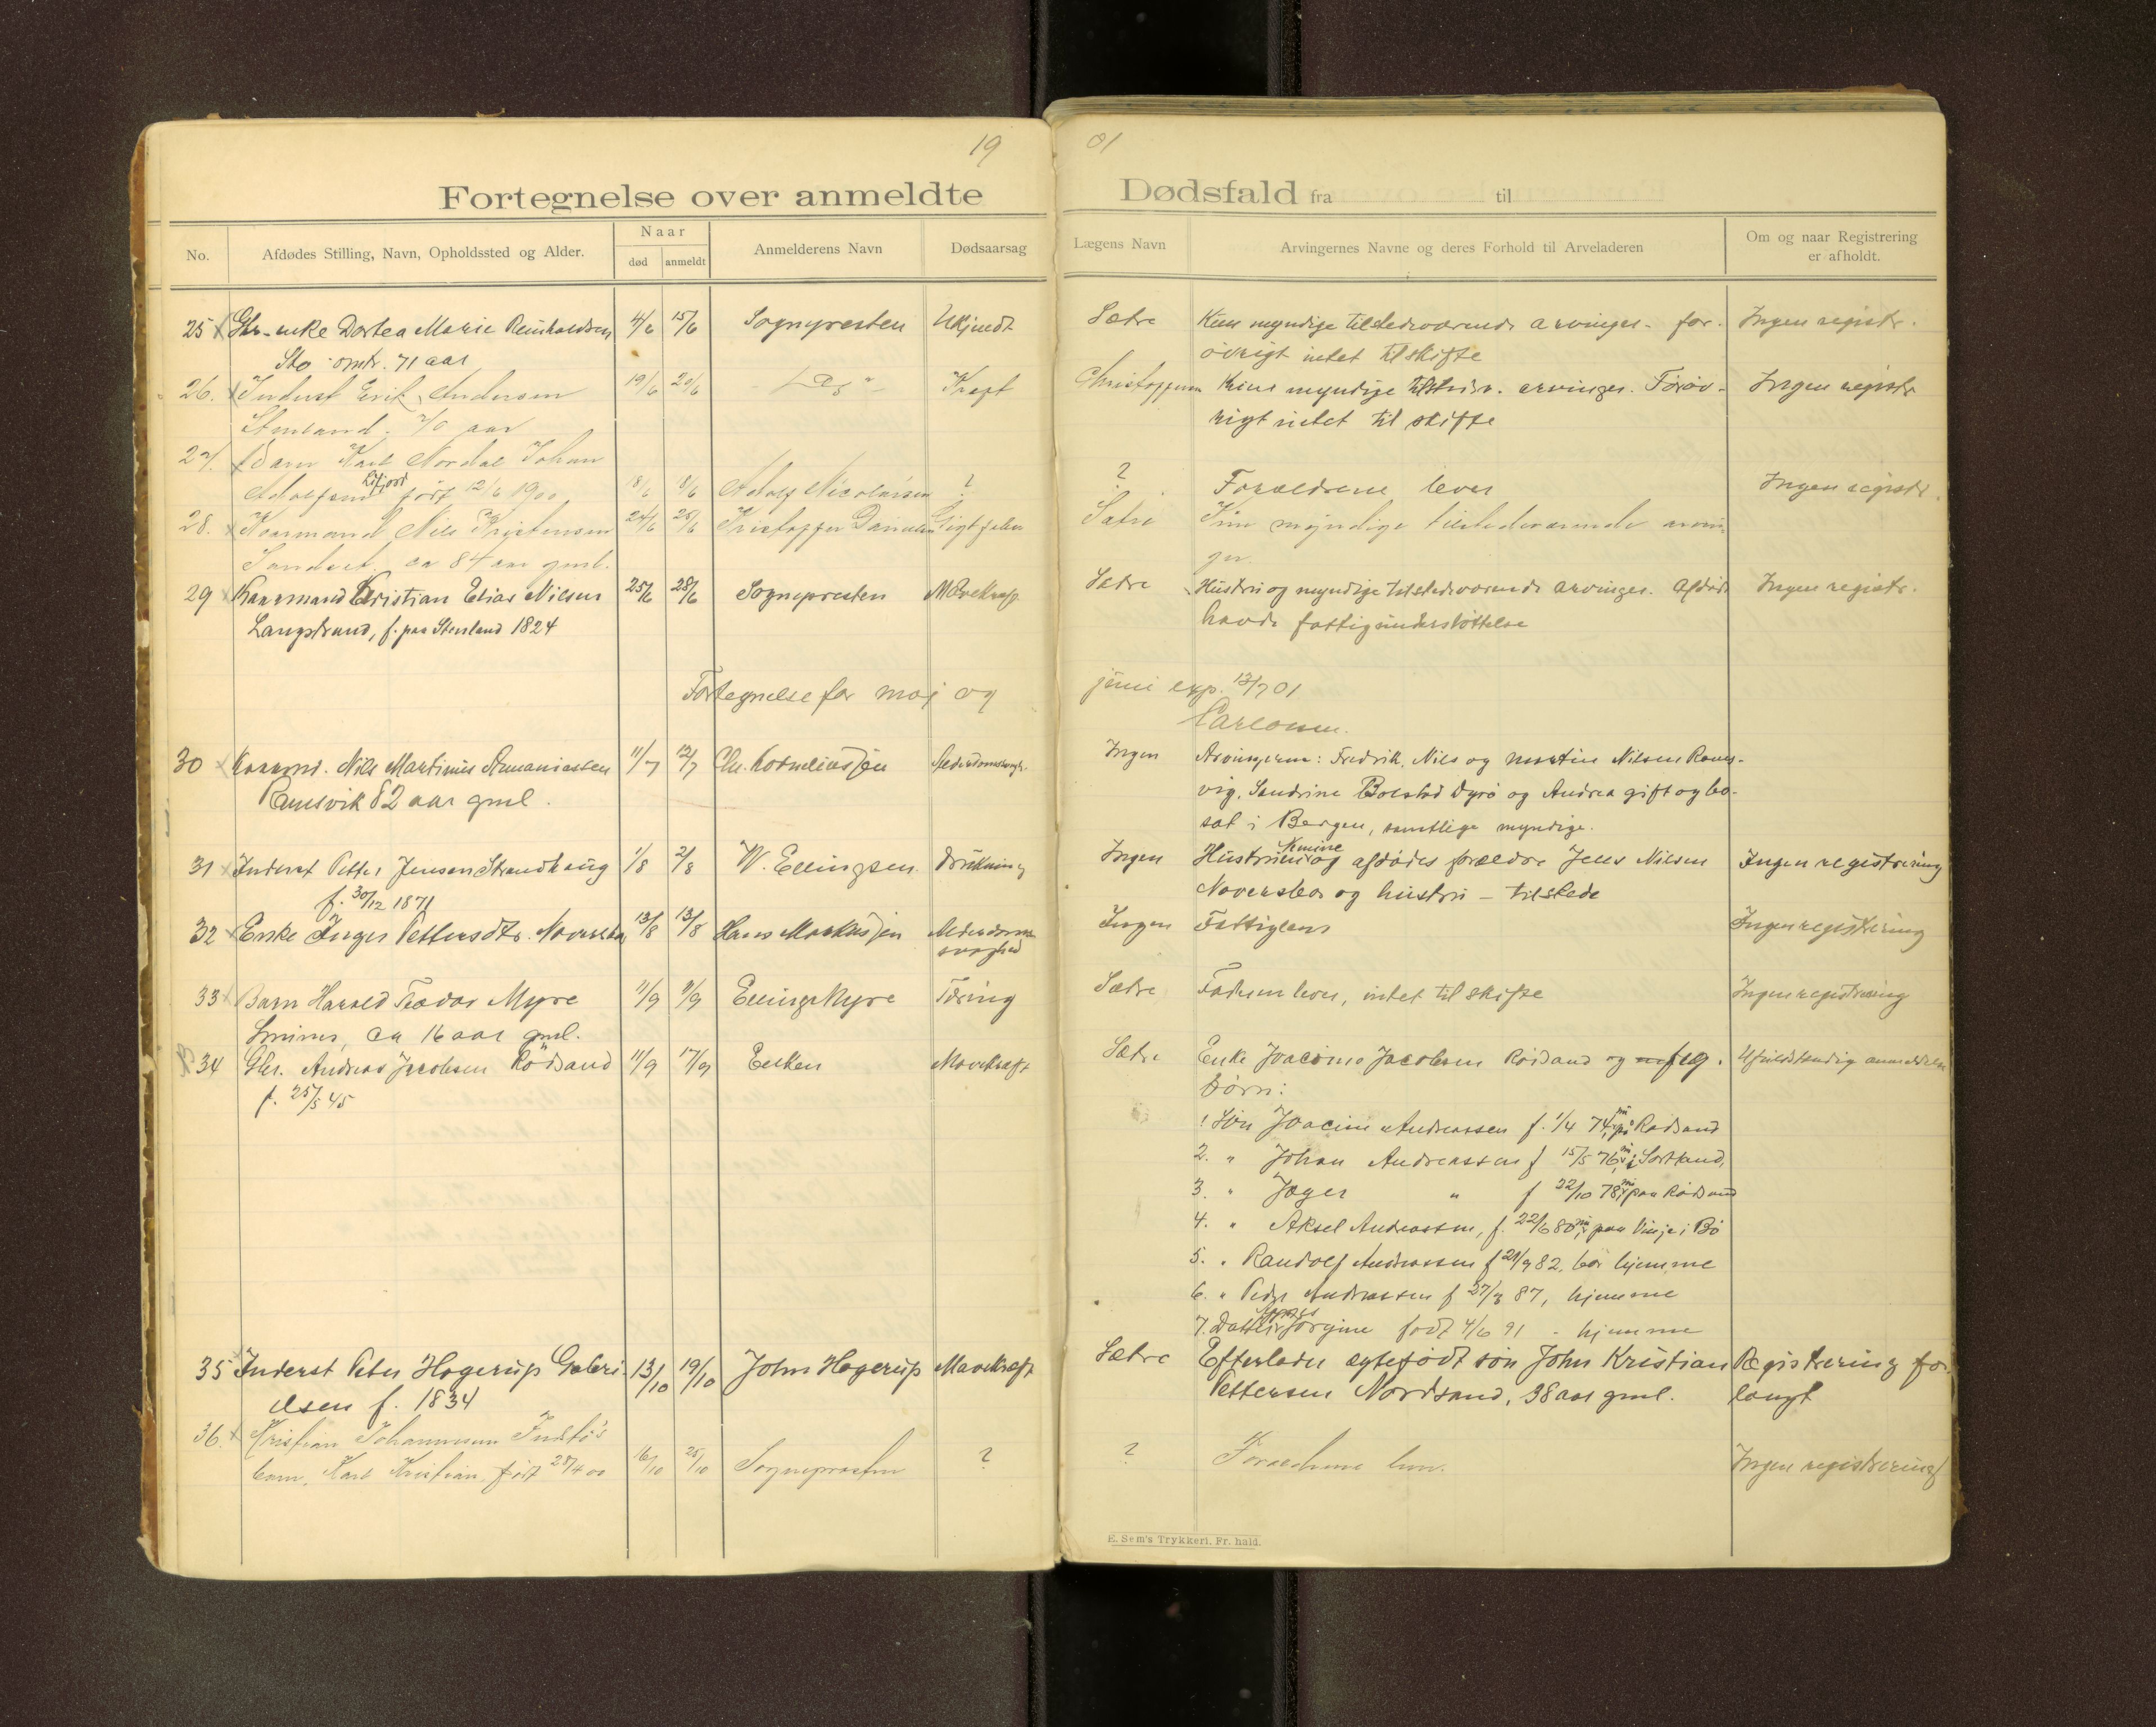 19
01
Fortegnelse over anmeldte
Dødsfald fra til
No.
Afdødes Stilling, Navn, Opholdssted og Alder.
Naar
død
anmeldt
Anmelderens Navn
Dødsaarsag
Lægens Navn
Arvingernes Navne og deres Forhold til Arveladeren
Om og naar Registrering
er afholdt.
25 x Gbr-enke Dortea Marie Reinholdsen 4/6 15/6 Sognepresten Ukjendt Sætre Kun myndige tilstedeværende arvinger. for- Ingen registr.
Sto omtr. 71 aar
øvrigt intet til skifte
26. x Inderst Erik Andersen 19/6 20/6 Kræft Kun myndige arvinger. Forøv- Ingen registr
Stenland. 70 aar
rigt intet til skifte
27. x Barn Karl Nordal Johan
Adolfsen født 12/6 1900 18/6 Adolf Nicolaisen ? ? Forældrene lever Ingen registr.
28. x Kaarmand Nils Kristensen 24/6 25/6 Kristoffer Sætre Kun myndige tilstedeværende arvin-
Sandset. ca 84 aar gml.
ger.
29 x Kaarmand Kristian Elias Nilsen 25/6 28/6 Sognepresten Mavekræft Sætre Hustru og myndige tilstedeværende arvinger. Afdøde Ingen registr.
Langstrand, f. paa Stenland 1824
havde fattigunderstøttelse
Fortegnelse for maj og juni exp. 12/7 01
30 x Kaarmd. Nils Martinus Ananiassen 11/7 12/7 Chr. Korneliussen Ingen Arvingerne: Fredrik, Nils og Martin Nilsen Rams-
Ramsvik 82 aar gml.
vig, Sandrine Bolstad Dyrø og Andrea gift og bo-
sat i Bergen, samtlige myndige.
31 x Inderst Petter Jensen Strandhaug 1/8 2/8 W. Ellingsen Drukning Ingen Hustruen og afdødes forældre Jens Nilsen Ingen registrering
f. 30/12 1871
og hustru – tilstede
32 x Enke Inger Pettersdtr. 13/8 13/8 Hans Markussen Alderdoms Ingen Fattiglem Ingen registrering
svaghed
33 x Barn Harald Teodor Myre 11/9 Elling Myre Tæring Sætre Faderen lever, intet til skifte Ingen registrering
ca 16 aar gml.
34 Gbr. Andreas Jacobsen Rødsand 11/9 17/9 Enken Mavekræft Sætre Enke Joacime Jacobsen Rødsand og flg. Ufuldstændig anmeldelse
f. 25/5 45
børn:
1 Søn Joacim Andreassen f. 1/4 74, Rødsand
2. " Johan Andreassen f 15/5 76, i Sortland,
3. " Jæger " f 22/10 78, paa Rødsand
4. " Aksel Andreassen, f. 22/6 80, paa Vinje i Bø
5. " Randolf Andreassen f 21/9 82, bor hjemme
6. " Peder Andreassen f 27/3 87, hjemme
7. Datter Jørgine født 4/6 91 - hjemme
35 Inderst Peter Hagerup Gabri- 13/10 19/10 John Hagerup Mavekræft Sætre Efterlader ægtefødt søn John Kristian Registrering for-
elsen f. 1834
Pettersen Nordsand, 38 aar gml.
langt
36. x Kristian Johannesen
barn, Karl Kristian, født 28/4 00 16/10 25/10 Sognepresten ? ? Forældrene lever. Ingen registrering
E. Sem's Trykkeri, Fr. hald.